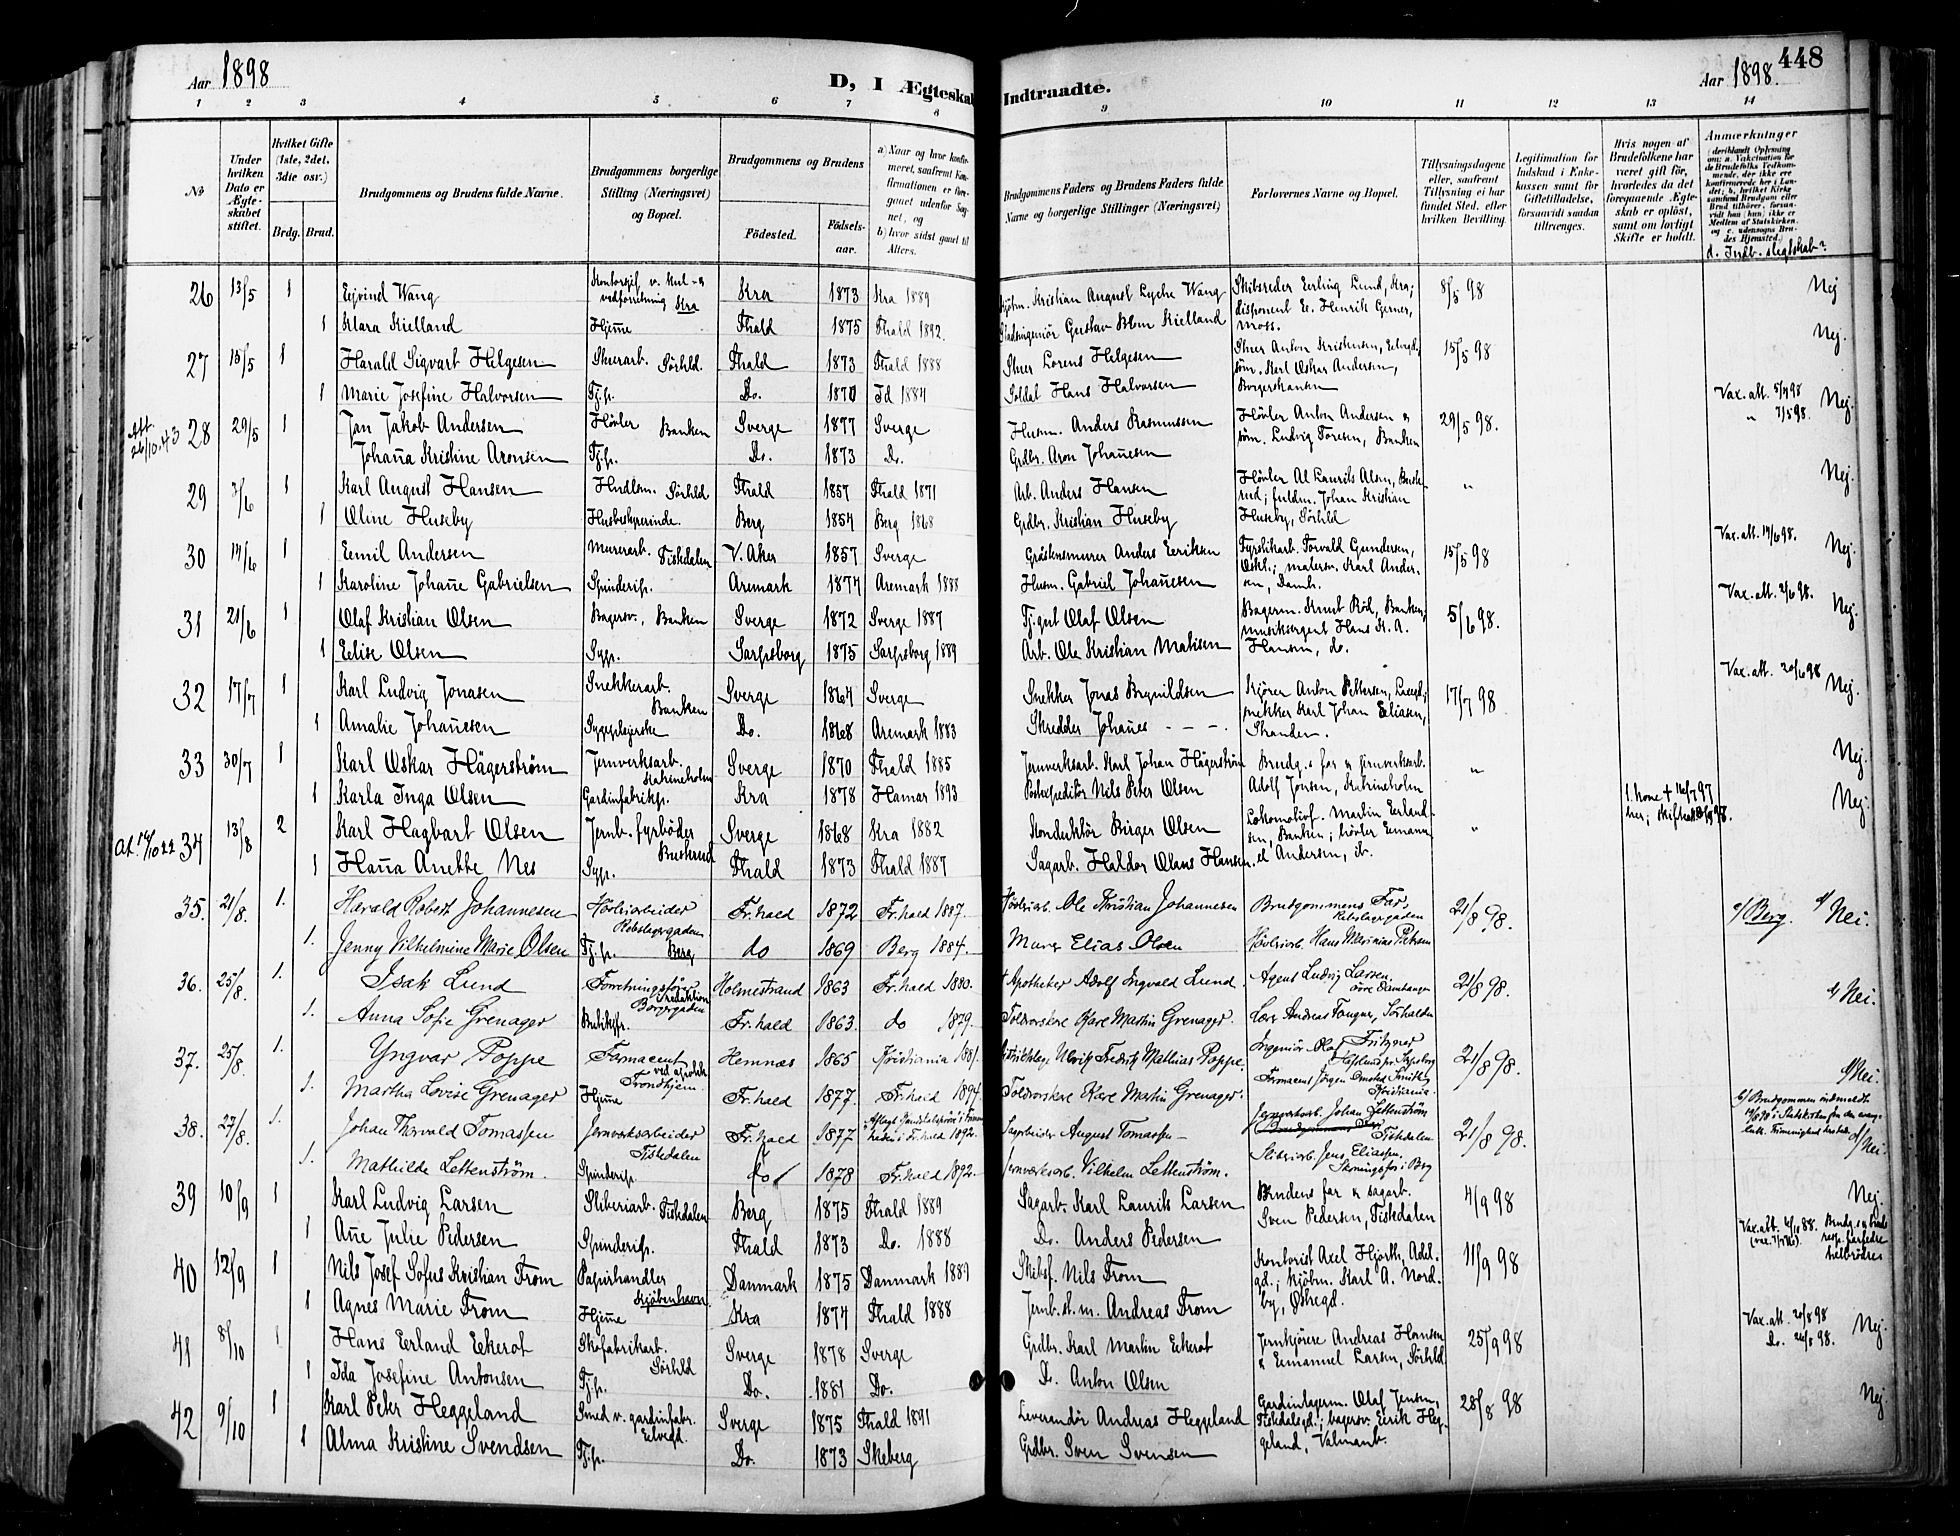 Aar 1898
D, I Ægteskab
Indtraadte.
Aar 1898.
448
1 2 3 4 5 6 7 8 9 10 11 12 13 14
No
Under hvilken Dato er Ægteskabet stiftet.
Hvilket Gifte (1ste, 2det, 3die osv.)
Brdg. Brud.
Brudgommens og Brudens fulde Navne.
Brudgommens borgerlige Stilling (Næringsvei) og Bopæl.
Brudgommens og Brudens
Fødested. Fødselsaar.
a) Naar og hvor konfirmeret, saafremt Konfirmationen er foregaaet udenfor Sognet, og
b) hvor sidst gaaet til Alters.
Brudgommens Faders og Brudens Faders fulde Navne og borgerlige Stillinger (Næringsvei)
Forlovernes Navne og Bopæl.
Tillysningsdagene eller, saafremt Tillysning ei har fundet Sted, efter hvilken Bevilling.
Legitimation for Indskud i Enkekassen samt for Giftetilladelse, forsaavidt saadan tiltrænges.
Hvis nogen af Brudefolkene har været gift før, hvorledes da det foregaaende Ægteskab er opløst, samt om lovligt Skifte er holdt.
Anmærkninger
d. Indb. slegtskab?
26 13/5 1 Ejvind Wang Kra 1873 Kra 1889 Kristian August Lyche Wang Skibsreder Erling Lund, Kra; 8/5 98 Nej
1 Klara Kielland Hjemme Fhald 1875 Fhald 1892. Stadsingeniør Gustav Blom Kielland disponent Er. Henrik Gerner, Moss. Nej.
27 15/5 1 Harald Sigvart Helgesen Skuerarb. Sørhld. Fhald 1873 Fhald 1888 Lorens Helgesen Anton Kristensen, 15/5 98
1 Marie Josefine Halvorsen Tj.p. Do. 1870 Id 1884 Soldat Hans Halvorsen Karl Oskar Andersen, Borgerskansen Vax. att. 5/4 98 Nej.
Att. 26/10.43 28 29/5 1 Jan Jakob Andersen Høvler Banken Sverge 1877 Sverge Husm. Anders Rasmussen Høvler Anton Andersen & 29/5 98. " 7/5 98.
Johanna Kristine Aronsen Tj.p. Do. 1873 Do. Grdbr. Aron Johannesen søm. Ludvig Toresen, Banken
29 3/6 1 Karl August Hansen Hndlsm. Sørhld Fhald 1857 Fhald 1871 Arb. Anders Hansen Høvler Al Laurits Alsen, Buskrud; fuldm. Johan Kristian " Nej.
1 Oline Huseby Husbestyrerinde. Berg 1854 Berg 1868 Grdbr. Kristian Huseby Huseby, Sørhld
30 14/6 1 Emil Andersen Murerarb. Tistedalen V. Aker 1857 Sverge Gråstensmurer Anders Eriksen Fyrstikarb. Torvald Gundersen, 15/5 98 Vax. att. 14/6 98. Nej.
1 Karoline Johanne Gabrielsen Spinderip. Aremark 1874 Aremark 1888 Husm. Gabriel Johannesen malersv. Karl Andersen, Damh.
31 21/6 1 Olaf Kristian Olsen Bagersv., Banken Sverge 1872 Sverge 1887 Tj.gut Olaf Olsen Bagerm. Knut Röd, Banken; 5/6 98. Vax. att. 2/6 98. Nej.
1 Elise Olsen Syp. Sarpsborg 1875 Sarpsborg 1889 Arb. Ole Kristian Matisen musiksergent Hans K. A. Hansen, do.
32 17/7 1 Karl Ludvig Jonasen Snekkerarb. Banken Sverge 1864 Sverge Snekker Jonas Brynildsen Kjører Anton Pettersen, 17/7 98 Vax. att. 20/6 98 Nej.
1 Amalie Johannesen Sygeplejerske Do. 1868 Aremark 1883 Skredder Johannes - - - snekker Karl Johan Eliasen, Stranden.
33 30/7 1 Karl Oskar Hägerström Jernverksarb. Katrineholm Sverge 1870 Fhald 1885 Jernverksarb. Karl Johan Hägerström Brudg.s far & jernverksarb. " Nej.
1 Karla Inga Olsen Gardinfabrikp. Kra 1878 Hamar 1893 Postexpeditör Nils Peter Olsen Adolf Jonsen, Katrineholm 1. kone + 16/7 97 Nej.
34 13/8 2 Karl Hagbart Olsen Jernb. fyrbøder Buskrud Sverge 1868 Kra 1882 Konduktør Birger Olsen Lokomotivf. Martin Erlandsen, Banken; høvler Emanuel "
1 Hanna Anette Nes Syp. Fhald 1873 Fhald 1887 Sagarb. Haldor Olaus Hansen Andersen, ib.
35. 21/8. 1. Harald Robert Johannesen Høvleriarbeider Rebslagergaden Fr.hald 1872 Fr.hald 1887. Høvleriarb. Ole Kristian Johannesen Brudgommens Far, Rebslagergaden 21/8 98. c/ Berg. d/ Nei.
1. Jenny Vilhelmine Marie Olsen Tj.p. Berg do 1869 Berg 1884. Murer Elias Olsen Høvleriarb. Hans Marinius Petersen
36. 25/8. 1. Isak Lund Forretningsfører Borgergaden Holmestrand 1863 Fr.hald 1880. Apotheker Adolf Ingvald Lund. Agent Ludvig Larsen 21/8 98. d/ Nei.
1. Anna Sofie Grenager Butikpr. Fr.hald 1863. do 1879. Toldvorskere Kare Martin Grenager. Lær. Andreas Fougner, Sørhalden
37. 25/8. 1. Yngvar Poppe Farmaceut Trondhjem. Hemnæs 1865 Kristiania 1881. Ulrik Fredrik Mathias Poppe. Ingeniør Olaf Fritzner Hafslund pr Sarpsborg 21/8 98. d/ Nei.
1. Martha Lovise Grenager Hjemme Fr.hald 1877. Fr.hald 1894. Toldvorskere Kare Martin Grenager. Farmaceut Jørgen Omsted Smith, Kristiania
38. 27/8. 1. Johan Thorvald Tomassen Jernverksarbeider Tistedalen Fr.hald 1877 Fr.hald 1892. Sagarbeider August Tomassen Jernverksarb. Johan Lettenström Tistedalen 21/8 98. b/ Brudgommen indmeldt d/ Nei.
1. Mathilde Lettenström. Spinderip. do 1878 Fr.hald 1892. Jernverksarb. Vilhelm Lettenström. Sliberiarb. Jens Eliassen.
39 10/9 1 Karl Ludvig Larsen Sliberiarb. Tistedalen Berg 1875 Fhald 1889 Sagarb. Karl Laurits Larsen Brudens far & sagarb. 4/9 98 Nej.
1 Anne Julie Pedersen Spinderip. Fhald 1873 Do. 1888 Do. Anders Pedersen Sven Pedersen, Tistedalen
40 12/9 1 Nils Josef Sofus Kristian From Papirhandler Kjøbenhavn. Danmark 1875 Danmark 1889 Skibsf. Nils From Kontorist Axel Hjorth, Adelgd.; kjøbm. Karl A. Nordby, Østregd. 11/9 98
1 Agnes Marie From Hjemme Kra 1874 Fhald 1888 Jernb. st. m. Andreas From
41 8/10 1 Hans Erland Ekerot Skofabrikarb. Sørhld Sverge 1878 Sverge Grdbr. Karl Martin Ekerot Jernkjörere Andreas Hansen & Emanuel Larsen, Sørhld. 25/9 98 Vax. att. 20/8 98 Nej.
1 Ida Josefine Antonsen Tj.p. Do. 1881 Do. D. Anton Olsen Do. 24/8 98.
42 9/10 1 Karl Peter Heggeland Smed v. gardinfabr. Sverge 1875 Fhald 1891 Leverandør Andreas Heggeland Gardinlagerm. Olaf Jensen, 28/8 98 Nej
1 Alma Kristine Svendsen Tj.p. Do. 1873 Skeberg Grdbr. Sven Svensen Tistedalsgd.; bagersv. Eirik Heggeland,